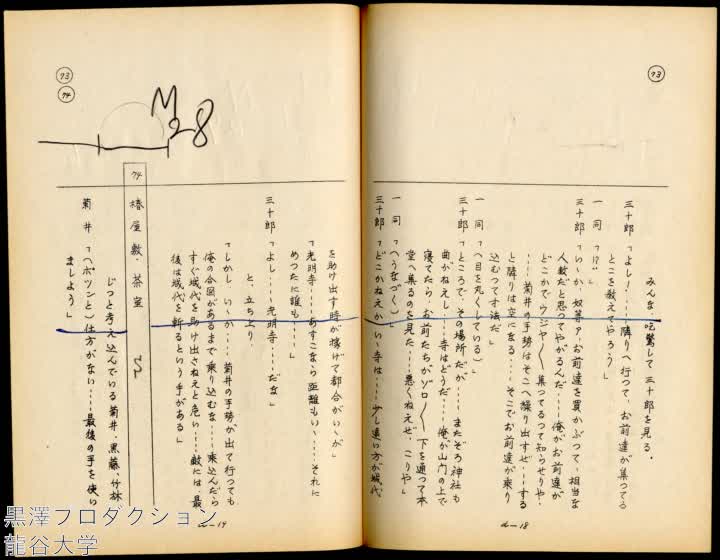 73
みんな、吃驚して三十郎を見る。
三十郎「よし!……隣りへ行つて、お前達が集つてる
とこを教えてやろう」
一同「!?」
三十郎「い丶か、奴等ァ、お前達を買かぶつて、相当な
人数だと思つてやがるんだ……俺がお前達が
どこかでウジャ〳〵集つてるつて知らせりや、
……菊井の手勢はそこへ繰り出すぜ……する
と隣りは空になる……そこでお前達が乗り
込むつて寸法だ」
一同「(目を丸くしている)」
三十郎「ところで、その場所だが……またぞろ神社も
曲がねえし……寺はどうだ……俺が山門の上で
寝てたら、お前たちがゾロ〳〵下を通つて本
堂へ集るのを見た……悪くねえぜ、こりや」
一同「(うなづく)」
三十郎「どこかねえか、い丶寺は……少し遠い方が城代
2—18
73
74
M28
を助け出す時が稼げて都合がい丶が」
「光明寺……あすこなら距離もい丶……それに
めつたに誰も……」
三十郎「よし……光明寺……だな」
と、立ち上り
「しかし、い丶か……菊井の手勢が出て行つても
俺の合図があるまで乗り込むな……乗込んだら
すぐ城代を助け出さねえと危い……敵には、最
後は城代を斬るという手がある」
74 椿屋敷・茶室
じつと考え込んでいる菊井、黒藤、竹林
菊井「(ポツンと)仕方がない……最後の手を使い
ましよう」
2—19
黒澤プロダクション
龍谷大学